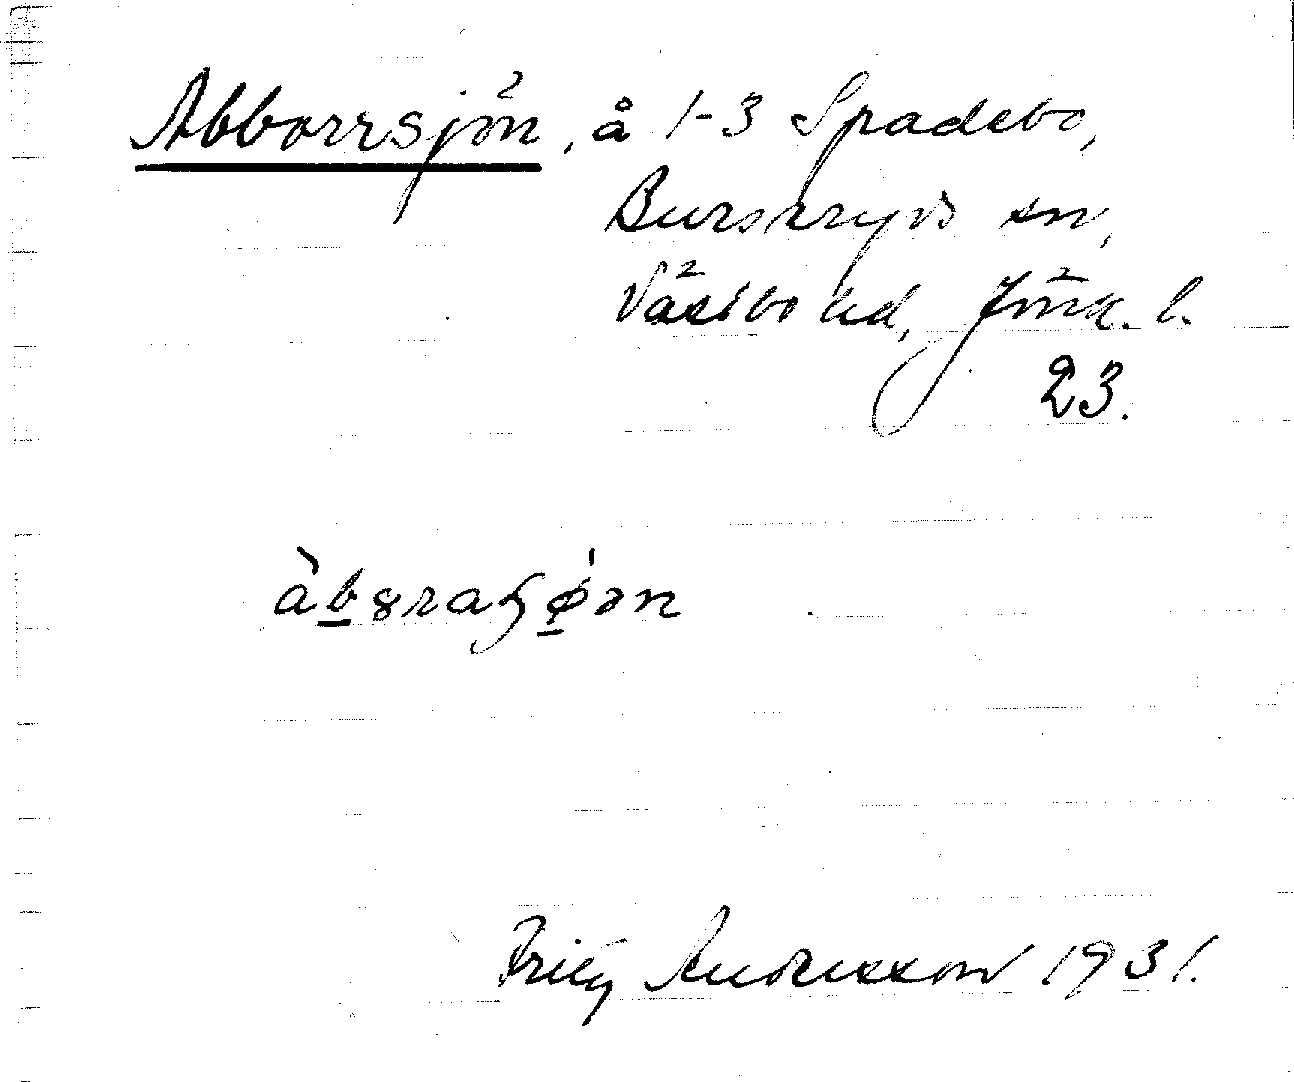 Abborrsjön, å 1-3 Spadebo,
Burseryds sn,
Västbo hd, Jönk. l.
23.
Andersson 1931.